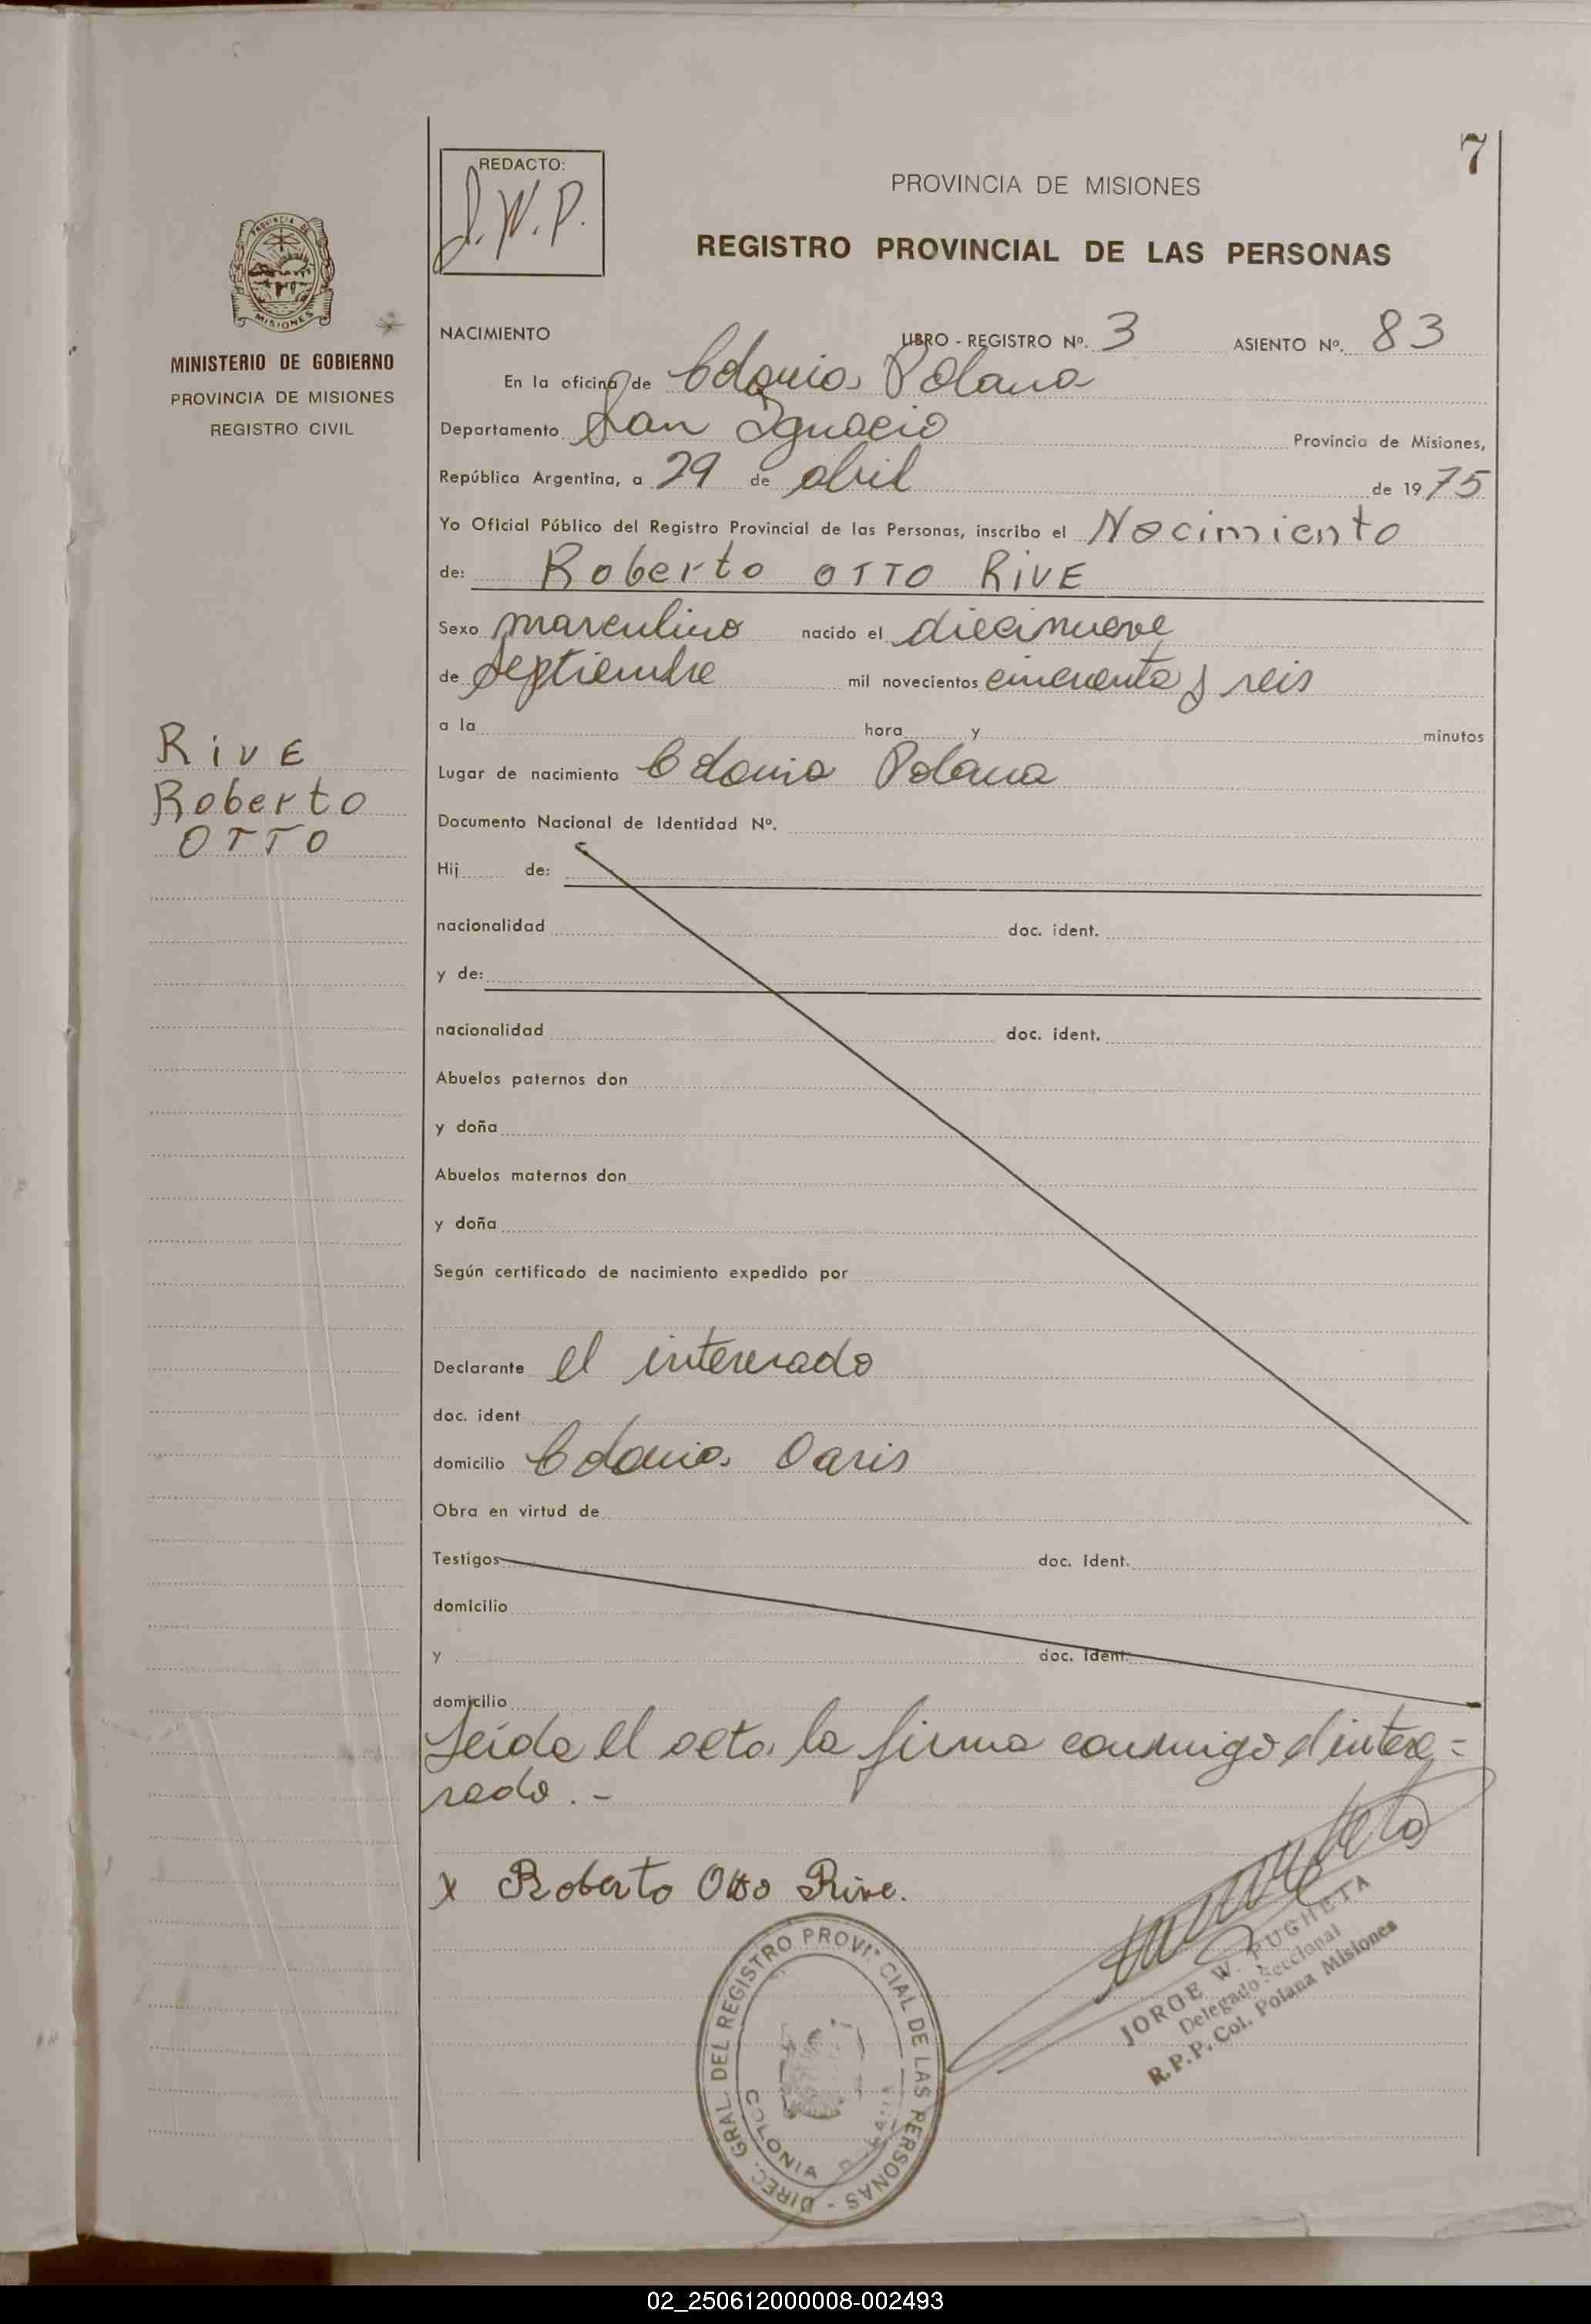 7
REDACTO:
J.W.P.
PROVINCIA DE MISIONES
REGISTRO PROVINCIAL DE LAS PERSONAS
PROVINCIA DE
MISIONES
MINISTERIO DE GOBIERNO
PROVINCIA DE MISIONES
REGISTRO CIVIL
NACIMIENTO LIBRO - REGISTRO Nº. 3 ASIENTO Nº. 83
En la oficina de Colonia Polana
Departamento San Ignacio Provincia de Misiones,
República Argentina, a 29 de abril de 1975
Yo Oficial Público del Registro Provincial de las Personas, inscribo el Nacimiento
de: Roberto OTTO RIVE
Sexo masculino nacido el diecinueve
de septiembre mil novecientos cincuenta y seis
a la hora y minutos
RIVE
Roberto
OTTO
Lugar de nacimiento Colonia Polana
Documento Nacional de Identidad Nº.
Hij de:
nacionalidad doc. ident.
y de:
nacionalidad doc. ident.
Abuelos paternos don
y doña
Abuelos maternos don
y doña
Según certificado de nacimiento expedido por
Declarante el interesado
doc. ident
domicilio Colonia Oasis
Obra en virtud de
Testigos doc. ident.
domicilio
y doc. ident.
domicilio
Leída el acta, la firma conmigo el intere=
sado.-
x Roberto Otto Rive.
JORGE W. PUGHETA
Delegado Seccional
R.P.P. Col. Polana Misiones
DIREC. GRAL. DEL REGISTRO PROVINCIAL DE LAS PERSONAS -
COLONIA
02_250612000008-002493